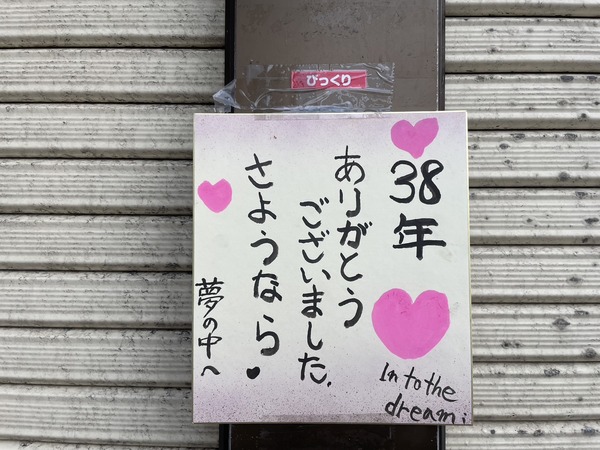 びっくり
38年
ありがとう
ございました.
さようなら
夢の中へ
In to the
dream.